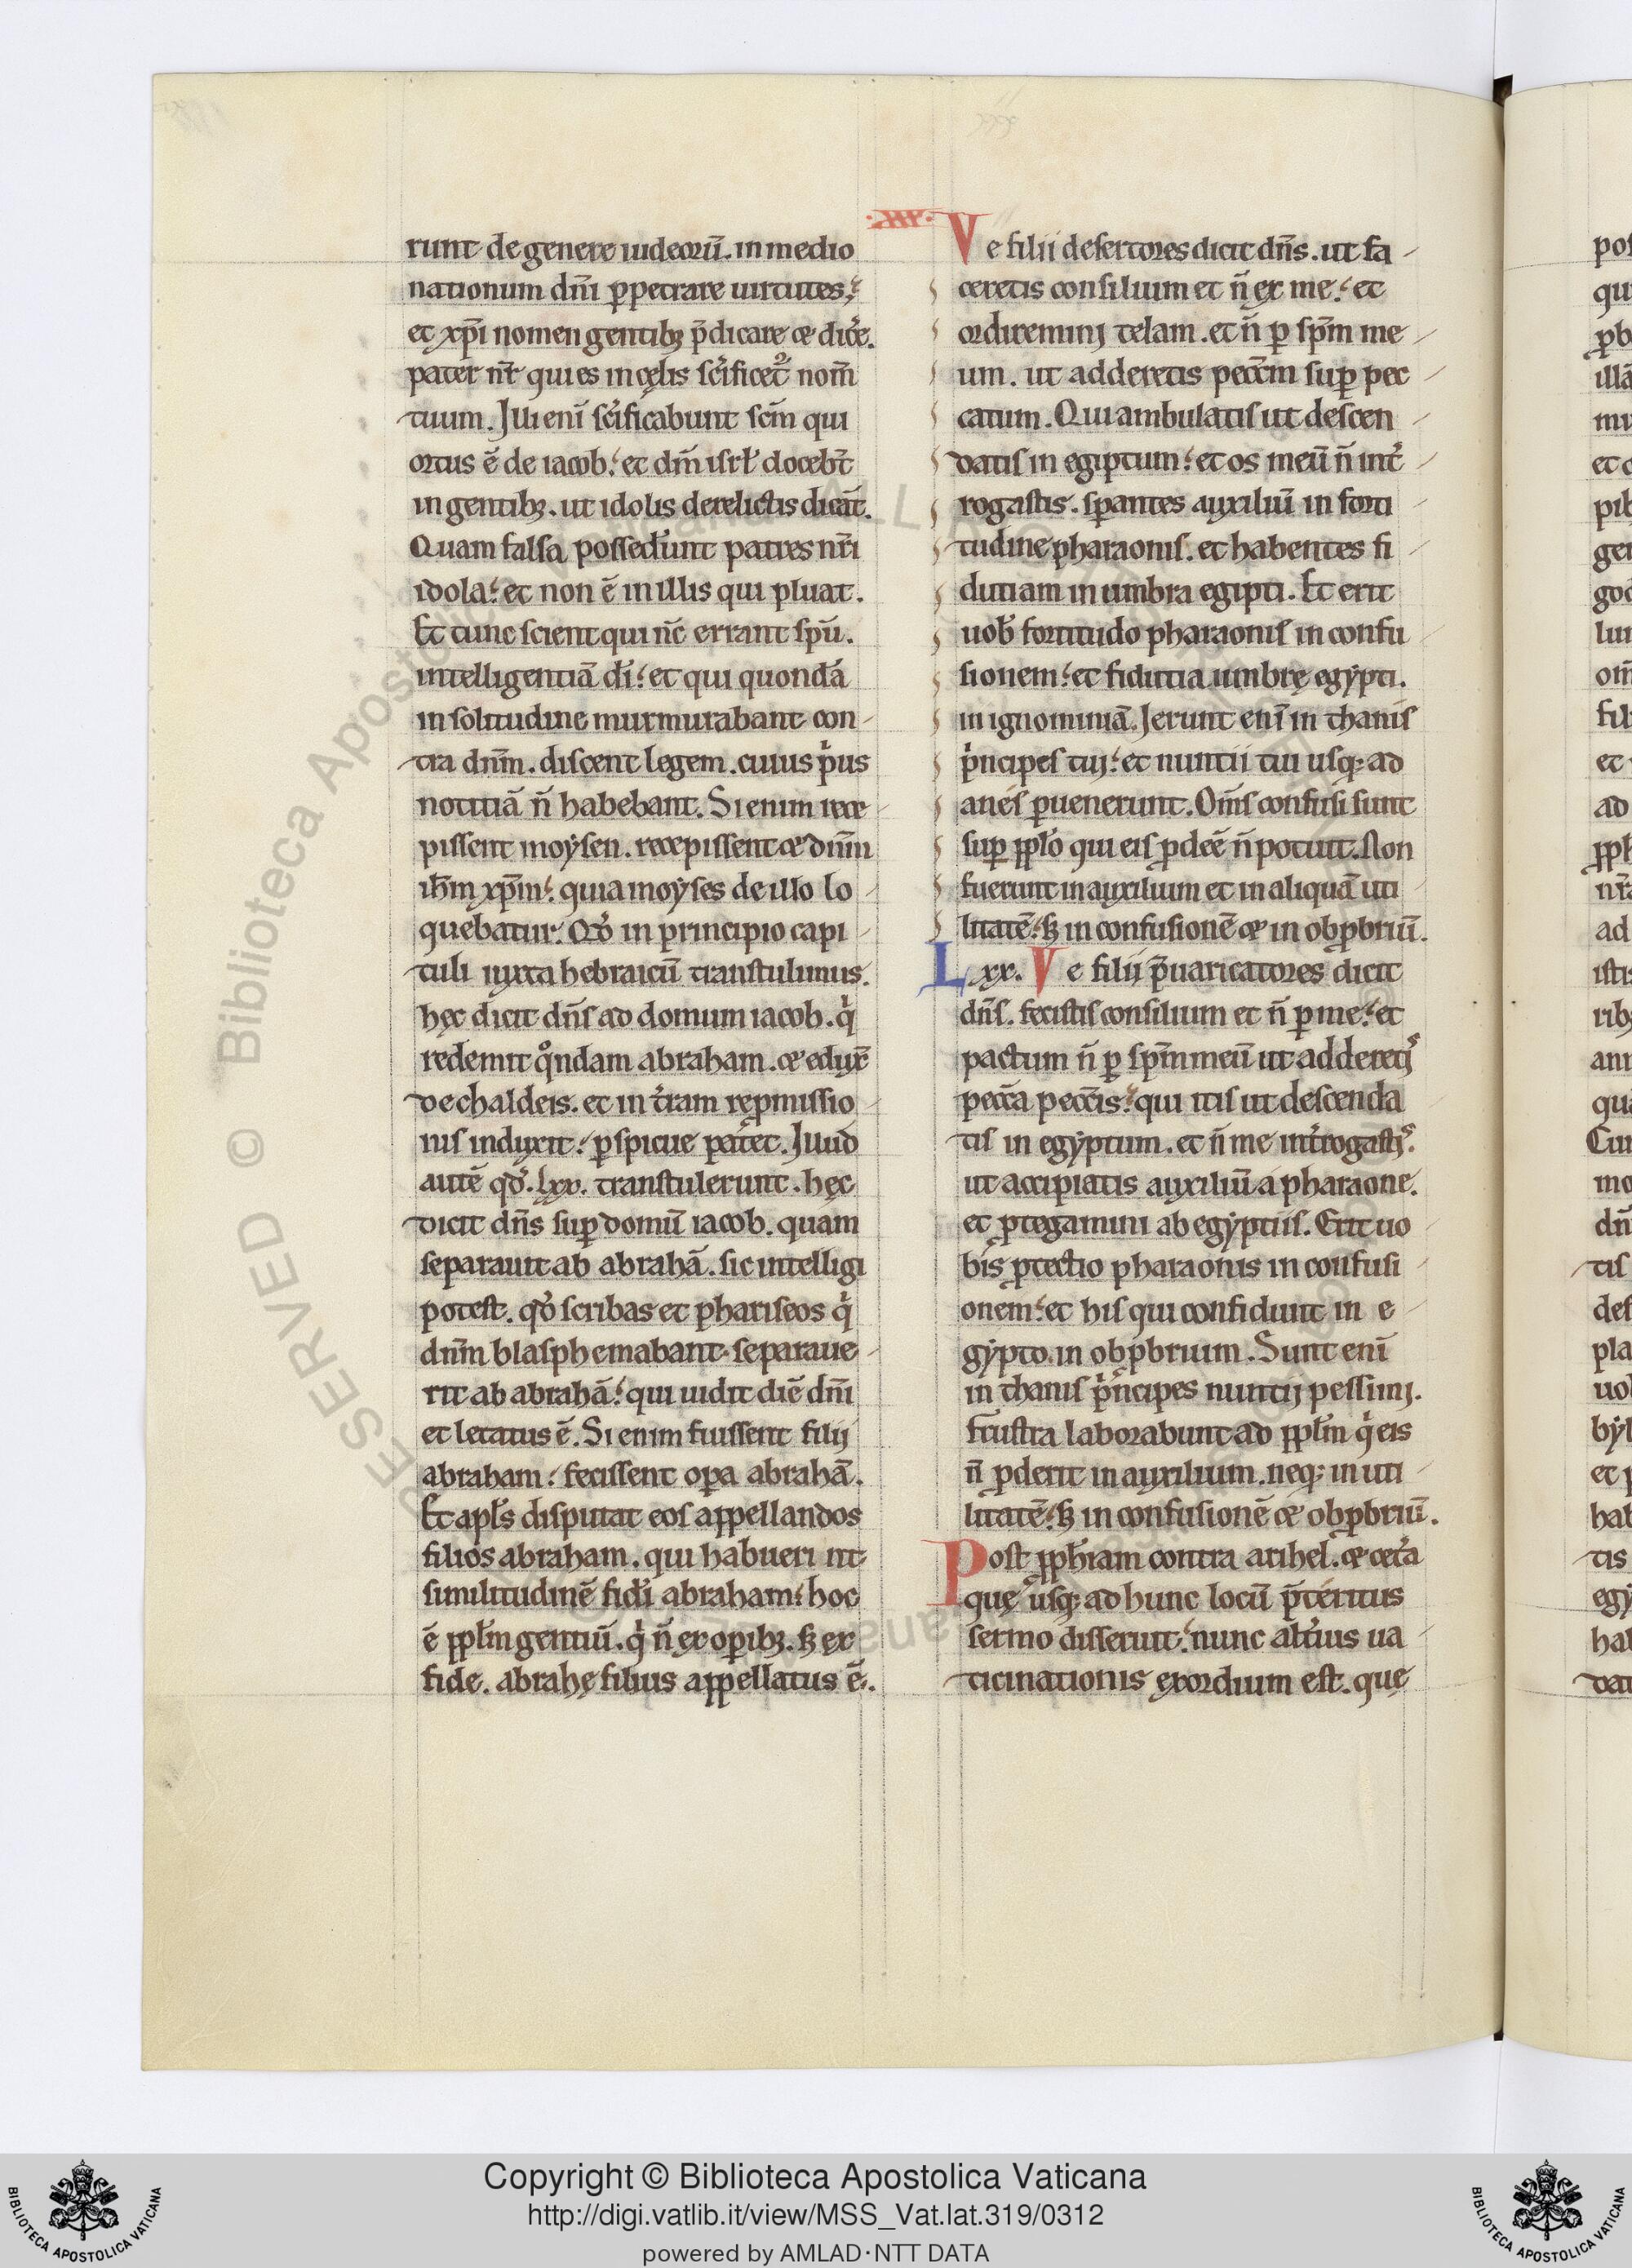 runt de genere iudeorū. in medio
nationum dn̄i ꝑpetrare uirtutes.
et xp̄i nomen gentibꝫ p̄dicare ⁊ dic̄e.
pater nr̄ qui es in cęlis sc̄ificet᷑ nom̄
tuum. Illi enī sc̄ificabunt sc̄m qui
ortus ē de iacob. et dm̄ isrł docebt̄
in gentibꝫ. ut idolis derelictis dicāt.
Quam falsa possed̄unt patres nr̄i
idola. et non ē in illis qui pluat.
Et tunc scient qui nc̄ errant spū.
intelligentiā dī. et qui quondā
in solitudine murmurabant con
tra dnm̄. discent legem. cuius pͥus
notitiā n̄ habebant. Si enim rece
pissent moysen. recepissent ⁊ dnm̄
ih̄m xp̄m. quia moyses de illo lo
quebatur. Qđ in principio capi
tuli iuxta hebraicū transtulimus.
hęc dicit dn̄s ad domum iacob. qͥ
redemit qͦndam abraham. ⁊ eduxē
de chaldeis. et in t̄ram repmissio
nis induxit. ꝑspicue patet. Illud
autē qđ. lxx. transtulerunt. hęc
dicit dn̄s suꝑ domū iacob. quam
separauit ab abrahā. sic intelligi
potest. qđ scribas et phariseos qͥ
dnm̄ blasphemabant. separaue
rit ab abrahā. qui uidit diē dn̄i
et letatus ē. Si enim fuissent filii
abraham. fecissent oꝑa abrahā.
Et apłs disputat eos appellandos
filios abraham. qui habuerint
similitudinē fidei abraham. hoc
ē ppłm gentiū. qͥ n̄ ex oꝑibꝫ. sꝫ ex
fide. abrahę filius appellatus ē.
.XXX.
Ve filii desertores dicit dn̄s. ut fa
ceretis consilium et n̄ ex me. et
ordiremini telam. et n̄ ꝑ spm̄ me
um. ut adderetis pecc̄m suꝑ pec
catum. Qui ambulatis ut descen
datis in egiptum. et os meū n̄ int̄
rogastis. sꝑantes auxiliū in forti
tudine pharaonis. et habentes fi
dutiam in umbra egipti. Et erit
uob̄ fortitudo pharaonis in confu
sionem. et fidutia umbrę egypti.
in ignominiā. Ierunt enī in thanis
pͥncipes tui. et nuntii tui usqꝫ ad
anes ꝑuenerunt. Om̄s confusi sunt
suꝑ ppło qui eis ꝓdeē n̄ potuit. Non
fuerunt in auxilium et in aliquā uti
litatē. sꝫ in confusionē ⁊ in obꝓbriū.
Lxx. Ve filii p̄uaricatores dicit
dn̄s. fecistis consilium et n̄ ꝑ me. et
pactum n̄ ꝑ spm̄ meū ut adderetis
pecc̄a pecc̄is. qui itis ut descenda
tis in egyptum. et n̄ me int̄rogastis.
ut accipiatis auxiliū a pharaone.
et ꝓtegamini ab egyptiis. Erit uo
bis ꝓtectio pharaonis in confusi
onem. et his qui confidunt in e
gypto. in obꝓbrium. Sunt enī
in thanis pͥncipes nuntij pessimi.
Frustra laborabunt ad ppłm qͥ eis
n̄ ꝓderit in auxilium. neqꝫ in uti
litatē. sꝫ in confusionē ⁊ obꝓbriū.
Post pph̄iam contra arihel. ⁊ cet̄a
quę usqꝫ ad hunc locū p̄teritus
sermo disseruit. nunc alt̄ius ua
ticinationis exordium est. quę
Copyright © Biblioteca Apostolica Vaticana
http://digi.vatlib.it/view/MSS_Vat.lat.319/0312
powered by AMLAD·NTT DATA
BIBLIOTECA APOSTOLICA VATICANA
BIBLIOTECA APOSTOLICA VATICANA